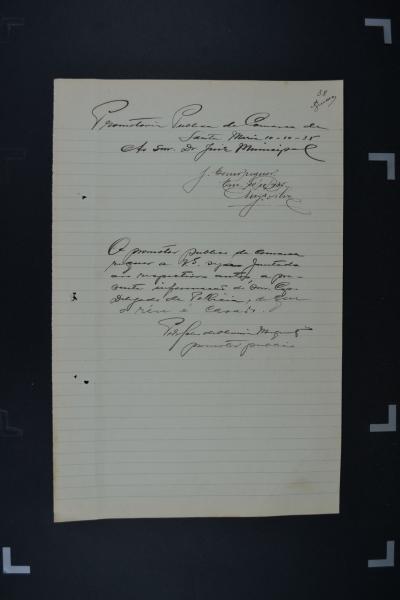 38
Promotoria Publica da Comarca de
Santa Maria 10-10-35
Ao Snr. Dr Juiz Municipal
J. Como requer.
Em
O promotor publico da Comarca
requer a VS. seja juntada
aos respectivos autos a pre-
sente informação do Snr.
Delegado de Policia, de que
o réu é casado.
promotor publico